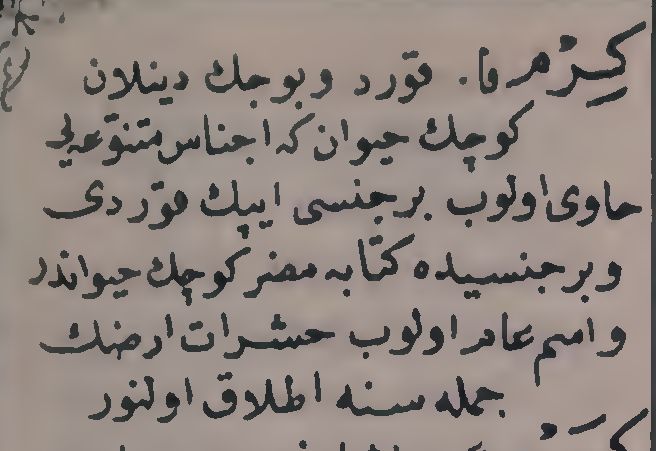 كِرْم فا. قورد وبوجك دينلان
كوچك حيوان كه اجناس متنوّعه‌يى
حاوى اولوب برجنسى ايپك قوردى
وبرجنسيده كتابه مضر كوچك حيواندر
واسم عام اولوب حشرات ارضك
جمله سنه اطلاق اولنور